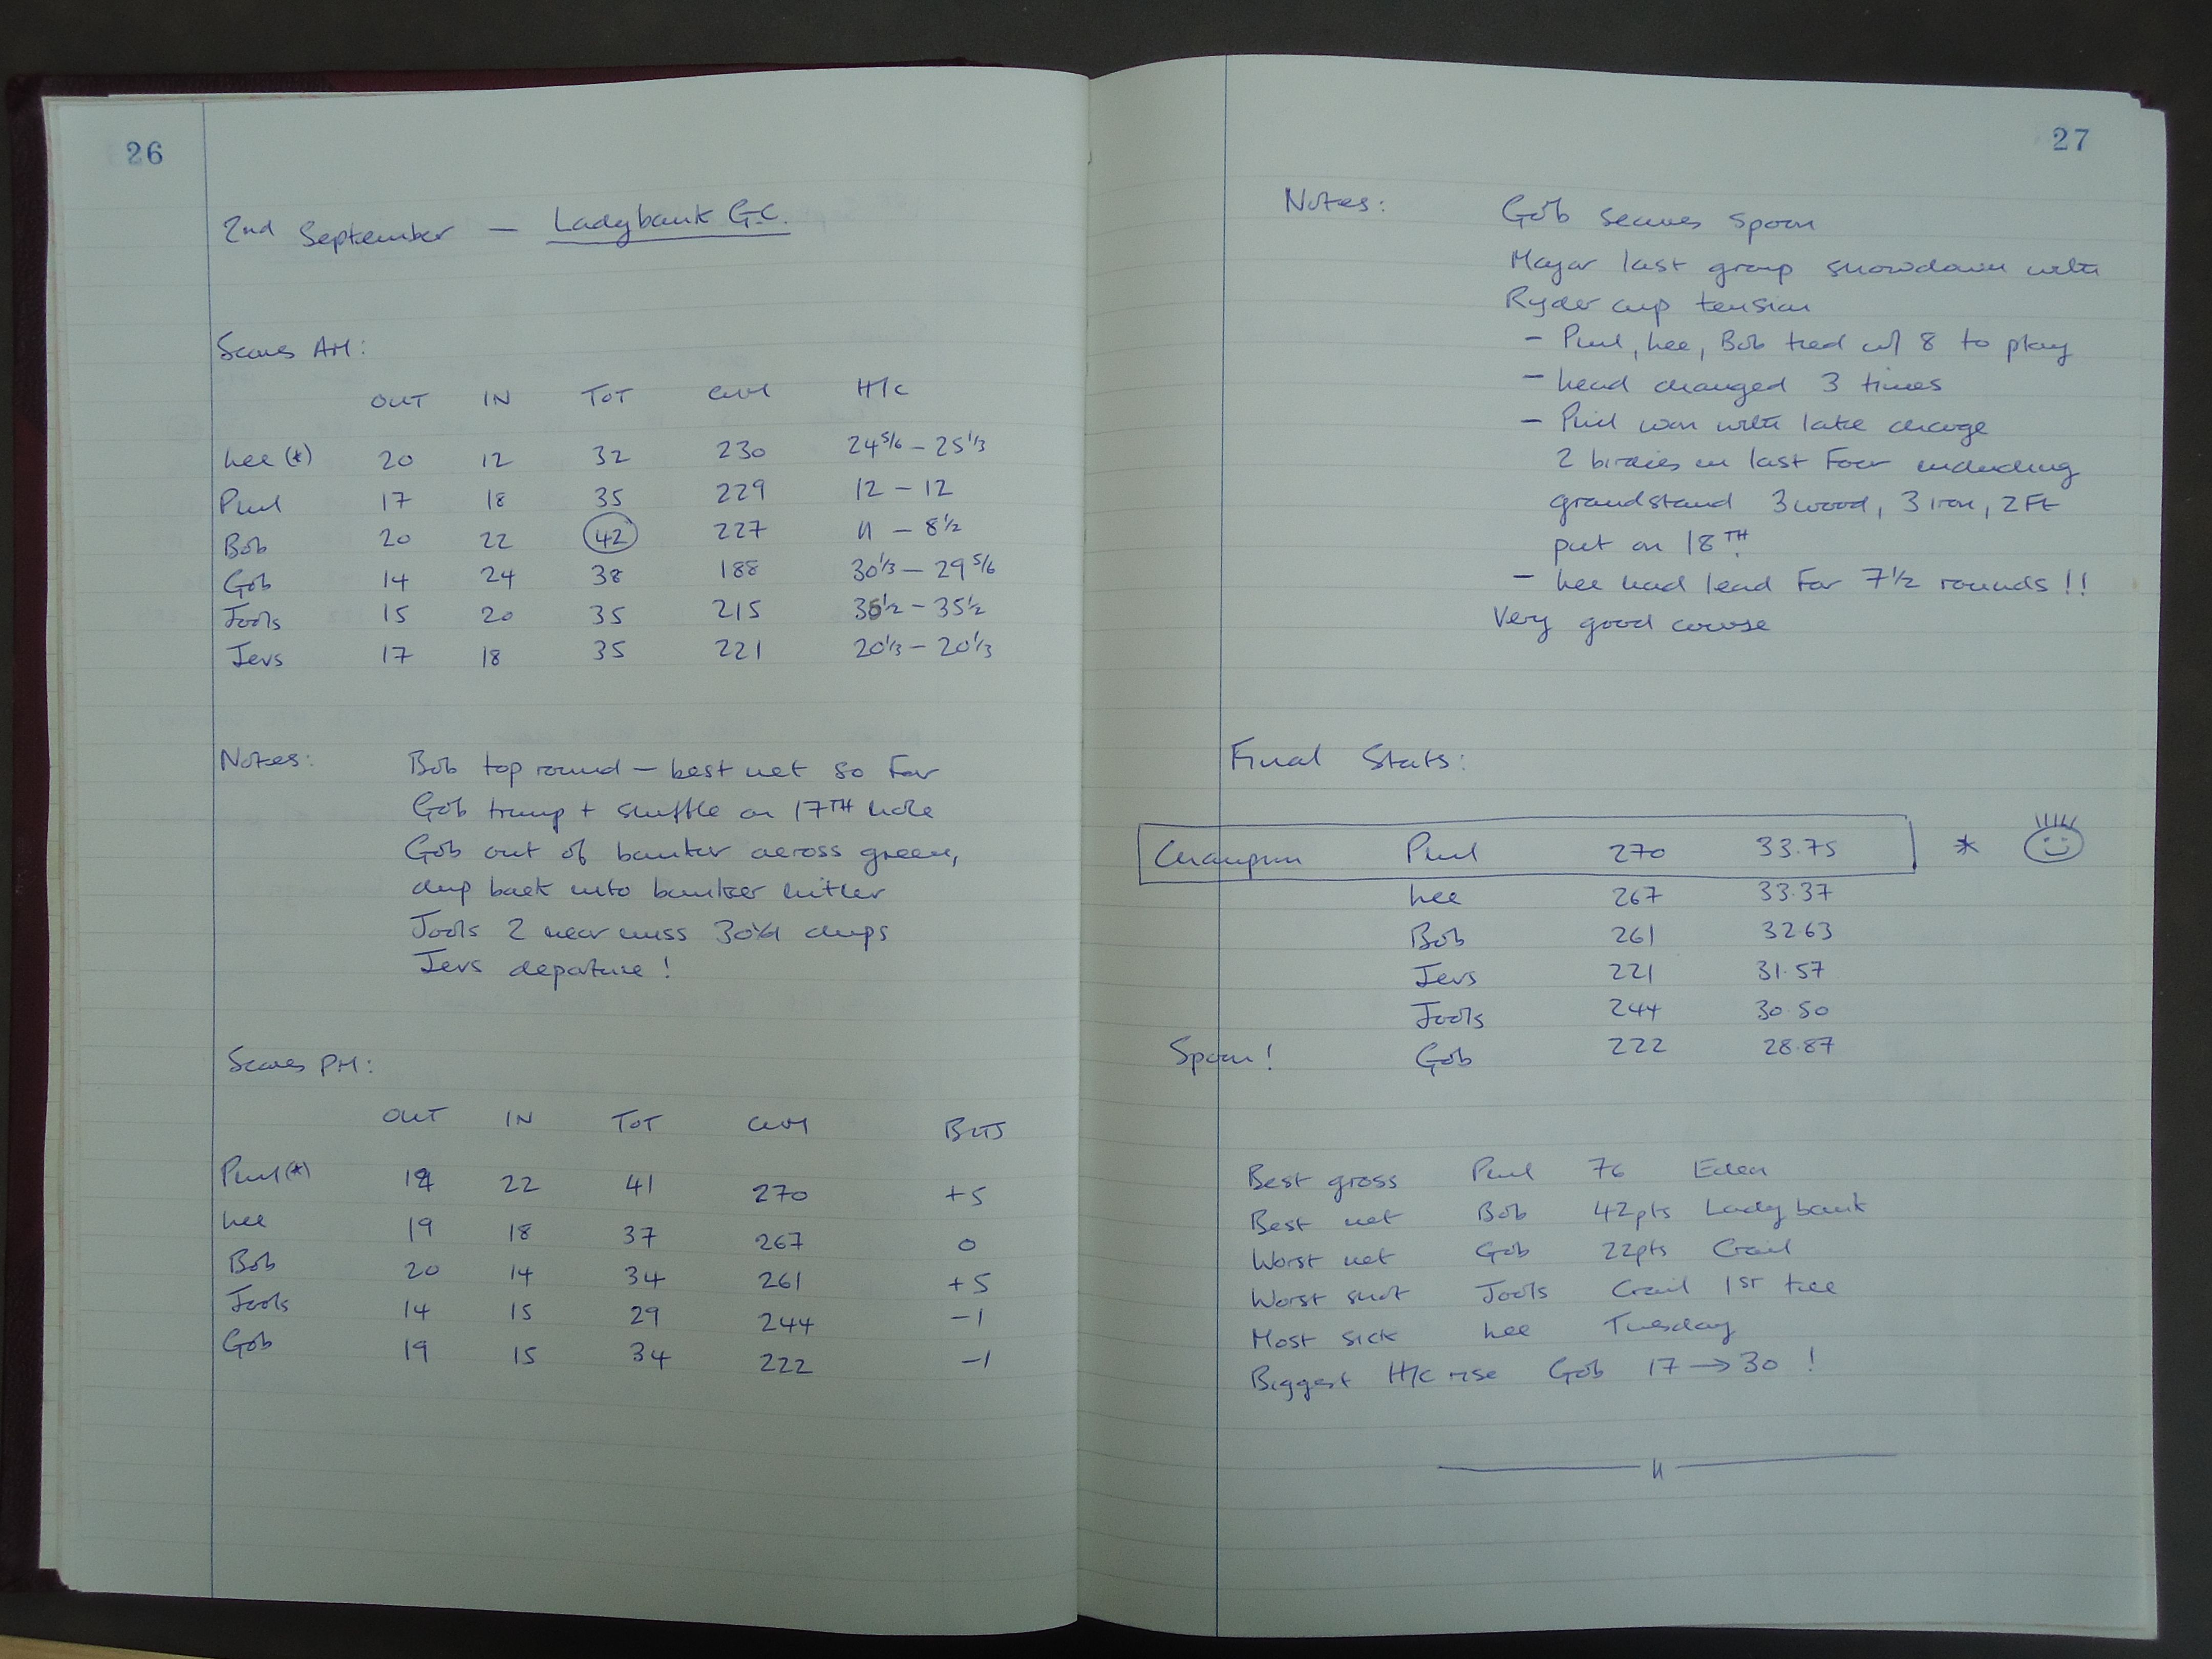 26
2nd September - Ladybank G.C.
Scores AM:
OUT IN TOT CUM H/C
Lee (*) 20 12 32 230 24 5/6 - 25 1/3
Phil 17 18 35 229 12 - 12
Bob 20 22 42 227 11 - 8 1/2
Gob 14 24 38 188 30 1/3 - 29 5/6
Jools 15 20 35 215 35 1/2 - 35 1/2
Jevs 17 18 35 221 20 1/3 - 20 1/3
Notes: Bob top round - best net so far
Gob tramp + shuffle on 17TH hole
Gob out of bunker across green,
chip back into bunker hitler
Jools 2 near miss 30yd chips
Jevs departure!
Scores PM:
OUT IN TOT CUM BITS
Phil (*) 19 22 41 270 +5
Lee 19 18 37 267 0
Bob 20 14 34 261 +5
Jools 14 15 29 244 -1
Gob 19 15 34 222 -1
27
Notes: Gob secures spoon
Major last group showdown with
Ryder cup tension
- Phil, Lee, Bob tied w/ 8 to play
- Lead changed 3 times
- Phil won with late charge
2 birdies in last four including
grandstand 3 wood, 3 iron, 2 Ft
putt on 18TH.
- Lee had lead for 7 1/2 rounds!!
Very good course
Final Stats:
Champion Phil 270 33.75 *
Lee 267 33.37
Bob 261 32.63
Jevs 221 31.57
Jools 244 30.50
Spoon! Gob 222 28.87
Best gross Phil 76 Eden
Best net Bob 42pts Ladybank
Worst net Gob 22pts Crail
Worst shot Jools Crail 1ST tee
Most sick Lee Tuesday
Biggest H/C rise Gob 17 → 30 !